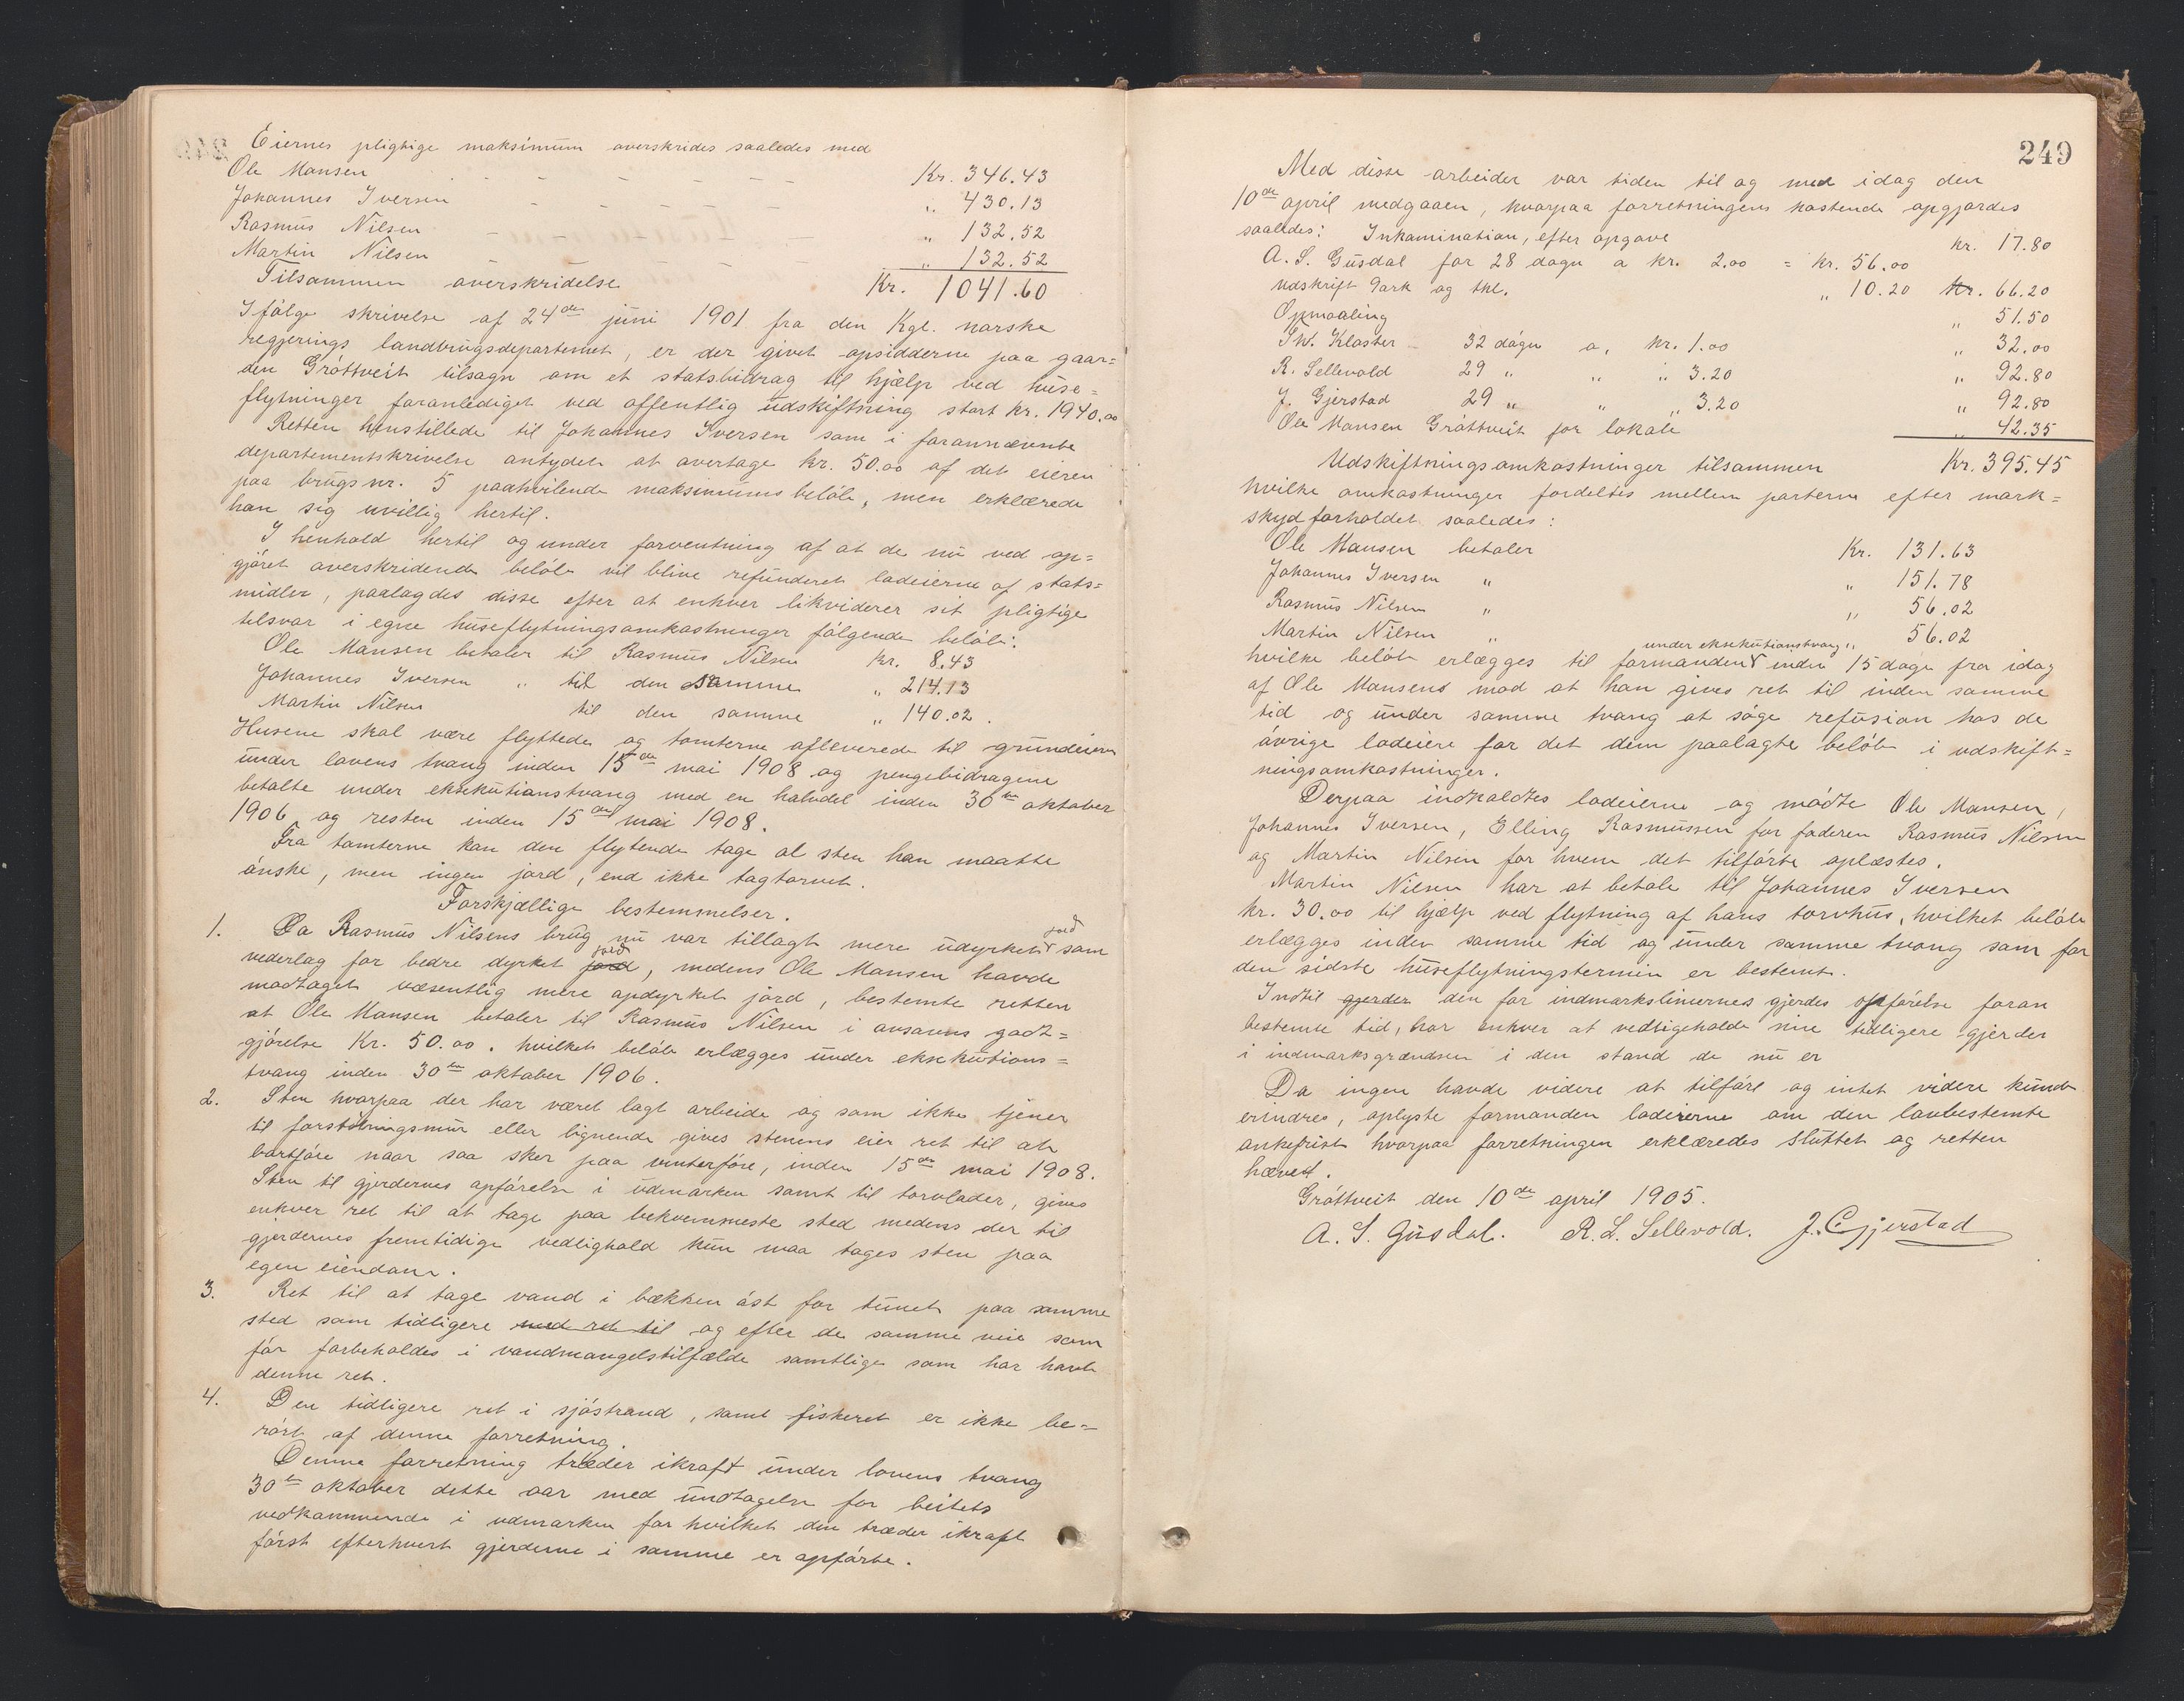 Eiernes pligtige maksimum overskrides saaledes med
Ole Monsen - - - - - - Kr. 346.43
Johannes Iversen - - - - - „ 430.13
Rasmus Nilsen - - - - - - „ 132.52
Martin Nilsen - - - - „ 132.52
Tilsammen overskridelse Kr. 1041.60
Ifølge skrivelse af 24de juni 1901 fra den Kgl. norske
regjerings landbrugsdepartement, er der givet opsidderne paa gaar=
den Grøttveit tilsagn om et statsbidrag til hjælp ved huse=
flytninger foranlediget ved offentlig udskiftning stort kr. 1940.00
Retten henstillede til Johannes Iversen som i forannævnte
departementskrivelse antydet at overtage kr. 50.00 af det eieren
paa brugs nr. 5 paahvilende maksimumsbeløb, men erklærede
han sig uvillig hertil.
I henhold hertil og under forventning af at de nu ved op=
gjøret overskridende beløb vil blive refunderet lodeierne af stats=
midler, paalagdes disse efter at enhver likviderer sit pligtige
tilsvar i egne huseflytningsomkostninger følgende beløb:
Ole Monsen betaler til Rasmus Nilsen Kr. 8.43
Johannes Iversen „ til den samme „ 214.13
Martin Nilsen til den samme „ 140.02.
Husene skal være flyttede og tomterne afleverede til grundeieren
under lovens tvang inden 15de mai 1908 og pengebidragene
betalte under eksekutionstvang med en halvdel inden 30te oktober
1906 og resten inden 15de mai 1908.
Fra tomterne kan den flytende tage al sten han maatte
ønske, men ingen jord, end ikke tagtorvet.
Forskjællige bestemmelser.
1. Da Rasmus Nilsens brug nu var tillagt mere udyrket jord som
vederlag for bedre dyrket jord jord, medens Ole Monsen havde
modtaget væsentlig mere opdyrket jord, bestemte retten
at Ole Monsen betaler til Rasmus Nilsen i ansavns godt=
gjørelse Kr. 50.00. hvilket beløb erlægges under eksekutions=
tvang inden 30te oktober 1906.
2. Sten hvorpaa der har været lagt arbeide og som ikke tjener
til forstøtningsmur eller lignende gives stenens eier ret til at
bortføre naar saa sker paa vinterføre, inden 15de mai 1908.
Sten til gjerdernes opførelse i udmarken samt til torvlader, gives
enhver ret til at tage paa bekvemmeste sted medens der til
gjerdernes fremtidige vedlighold kun maa tages sten paa
egen eiendom.
3. Ret til at tage vand i bækken øst for tunet paa samme
sted som tidligere med ret til og efter de samme veie som
før forbeholdes i vandmangelstilfælde samtlige som har havt
denne ret.
4. Den tidligere ret i sjøstrand, samt fiskeret er ikke be=
rørt af denne forretning.
Denne forretning træder ikraft under lovens tvang
30te oktober dette aar med undtagelse for beitets
vedkommende i udmarken for hvilket den træder ikraft
først efterhvert gjerderne i samme er opførte.
249
Med disse arbeider var tiden til og med idag den
10de april medgaaen, hvorpaa forretningens kostende opgjordes
saaledes: Inkamination, efter opgave kr. 17.80
A. S. Gusdal for 28 dage a kr. 2.00 = kr. 56.00
udskrift 9 ark og tkl. „ 10.20 Kr. 66.20
Opmaaling „ 51.50
Sw. Kloster - 32 dage a, kr. 1.00 „ 32.00
R. Sellevold 29 „ „ „ 3.20 „ 92.80
J. Gjerstad 29 „ „ „ 3.20 „ 92.80
Ole Monsen Grøttveit for lokale „ 42.35
Udskiftningsomkostninger tilsammen Kr. 395.45
hvilke omkostninger fordeltes mellem parterne efter mark=
skyldforholdet saaledes:
Ole Monsen betaler Kr. 131.63
Johannes Iversen „ „ 151.78
Rasmus Nilsen „ „ 56.02
Martin Nilsen „ „ 56.02
under eksekutionstvang
hvilke beløb erlægges til formanden inden 15 dage fra idag
af Ole Monsens mod at han gives ret til inden samme
tid og under samme tvang at søge refusion hos de
øvrige lodeiere for det dem paalagte beløb i udskift=
ningsomkostninger.
Derpaa indkaldtes lodeierne og mødte Ole Monsen,
Johannes Iversen, Elling Rasmussen for faderen Rasmus Nilsen
og Martin Nilsen for hvem det tilførte oplæstes.
Martin Nilsen har at betale til Johannes Iversen
kr. 30.00 til hjælp ved flytning af hans torvhus, hvilket beløb
erlægges inden samme tid og under samme tvang som for
den sidste huseflytningstermin er bestemt.
Indtil gjerder den for indmarkslinernes gjerdes opførelse foran
bestemte tid, har enhver at vedligeholde sine tidligere gjerder
i indmarksgrændsen i den stand de nu er
Da ingen havde videre at tilføre og intet videre kunde
erindres, oplyste formanden lodeierne om den lovbestemte
ankefrist hvorpaa forretningen erklæredes sluttet og retten
hævet.
Grøttveit den 10de april 1905.
A. S. Gusdal. R. L. Sellevold. J. C. Gjerstad